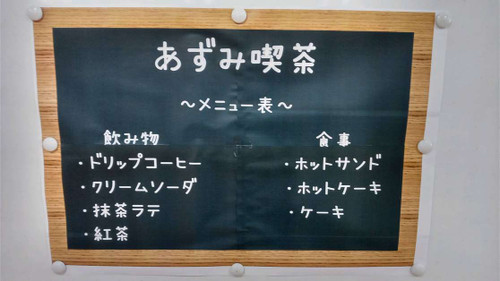 あずみ喫茶
～メニュー表～
飲み物
・ドリップコーヒー
・クリームソーダ
・抹茶ラテ
・紅茶
食事
・ホットサンド
・ホットケーキ
・ケーキ